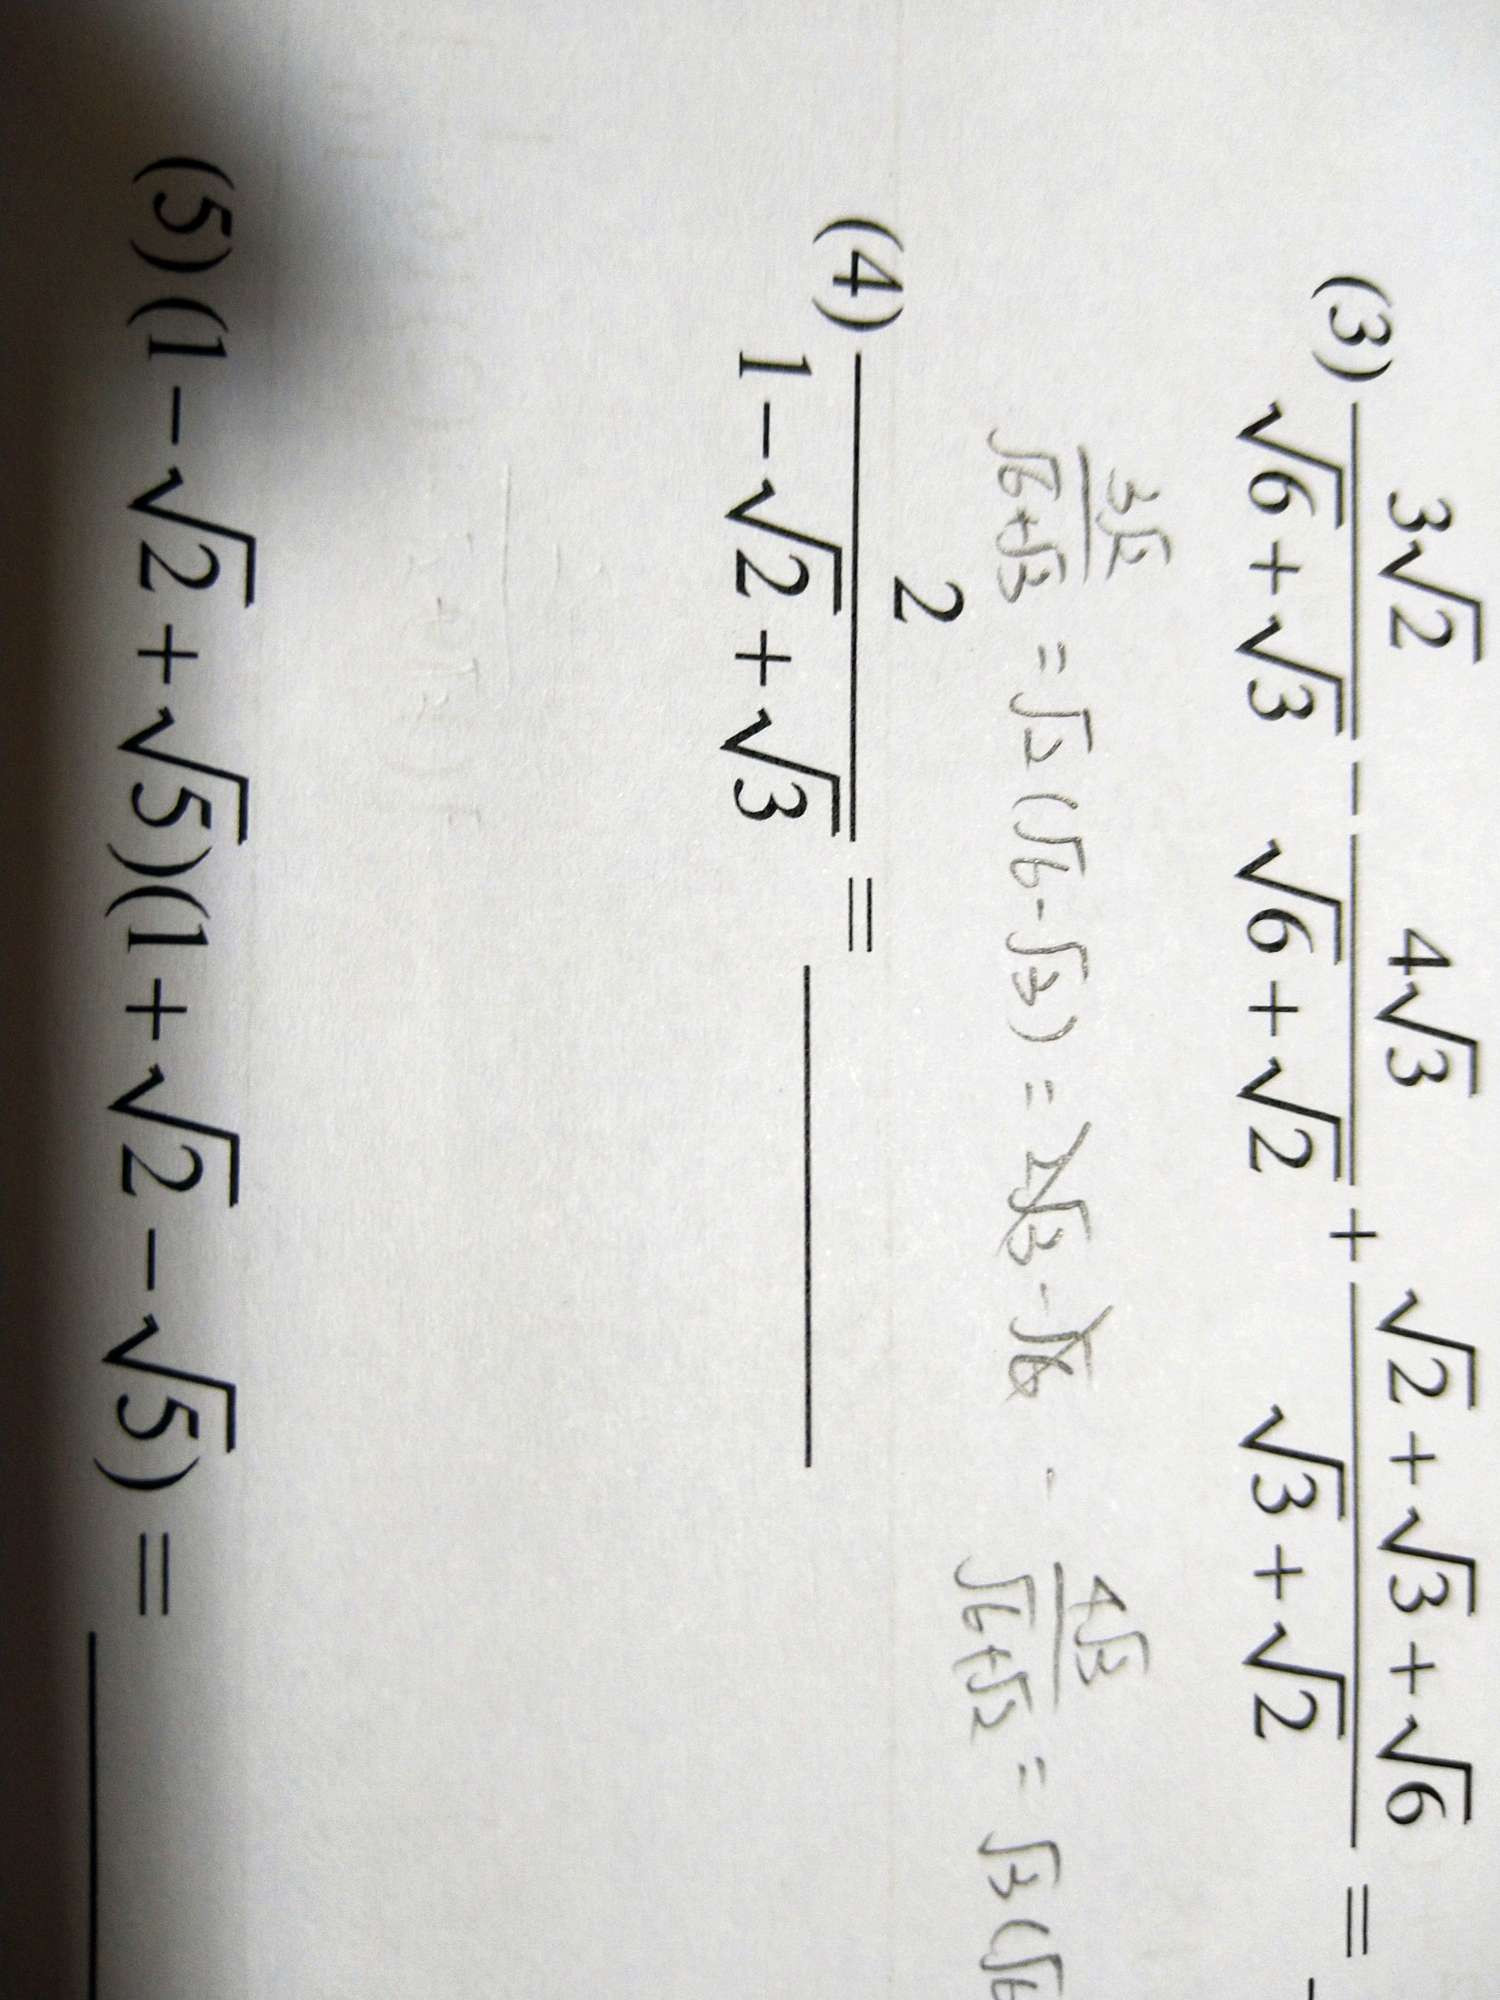 (3) 3√2/(√6+√3) − 4√3/(√6+√2) + (√2+√3+√6)/(√3+√2) =
3√2/(√6+√3) = √2(√6-√3) = 2√3-√6 - 4√3/(√6+√2) = √3(√6
(4) 2/(1−√2+√3) =
(5) (1−√2+√5)(1+√2−√5) =